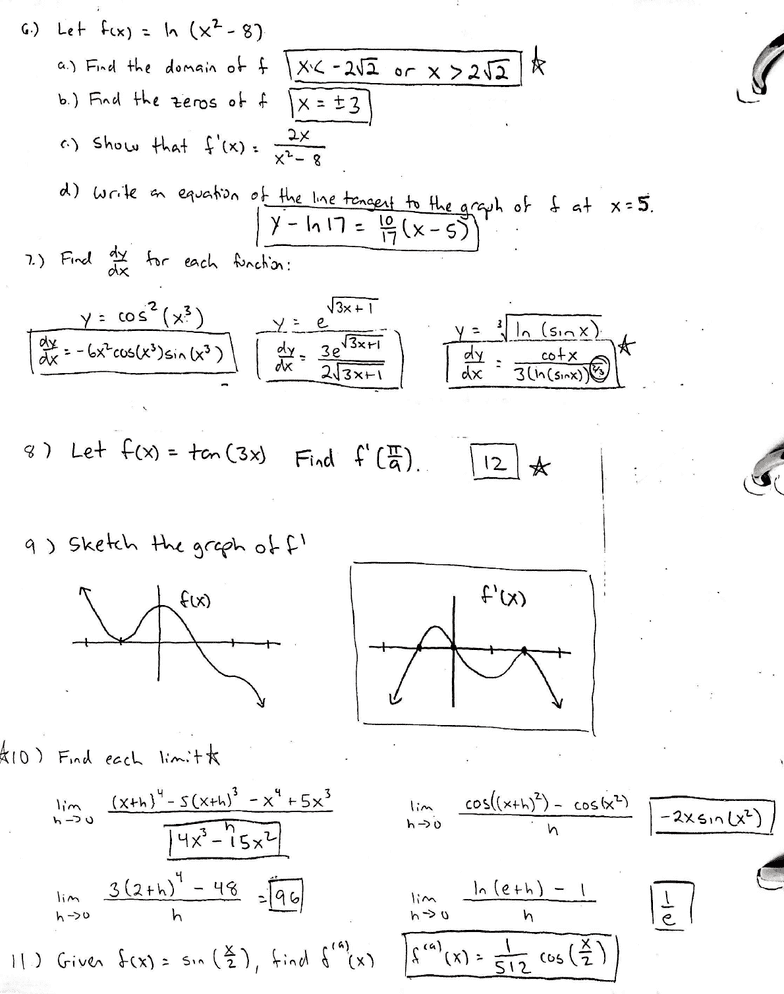 6.) Let f(x) = ln (x² - 8)
a.) Find the domain of f x < -2√2 or x > 2√2 ☆
b.) Find the zeros of f x = ±3
c.) Show that f'(x) = 2x/(x² - 8)
d) Write an equation of the line tangent to the graph of f at x = 5.
y - ln 17 = 10/17 (x - 5)
7.) Find dy/dx for each function:
y = cos² (x³) y = e^√(3x+1) y = ³√(ln (sin x))
dy/dx = -6x² cos(x³) sin (x³) dy/dx = 3e^√(3x+1) / 2√(3x+1) dy/dx = cot x / 3(ln(sinx))^(2/3) ☆
8) Let f(x) = tan (3x) Find f'(π/9). 12 ☆
9) Sketch the graph of f'
f(x) f'(x)
☆10) Find each limit ☆
lim h→0 ((x+h)⁴ - 5(x+h)³ - x⁴ + 5x³)/h 4x³ - 15x² lim h→0 (cos((x+h)²) - cos(x²))/h -2x sin(x²)
lim h→0 (3(2+h)⁴ - 48)/h = 96 lim h→0 (ln (e+h) - 1)/h 1/e
11) Given f(x) = sin (x/2), find f⁽⁹⁾(x) f⁽⁹⁾(x) = 1/512 cos (x/2)